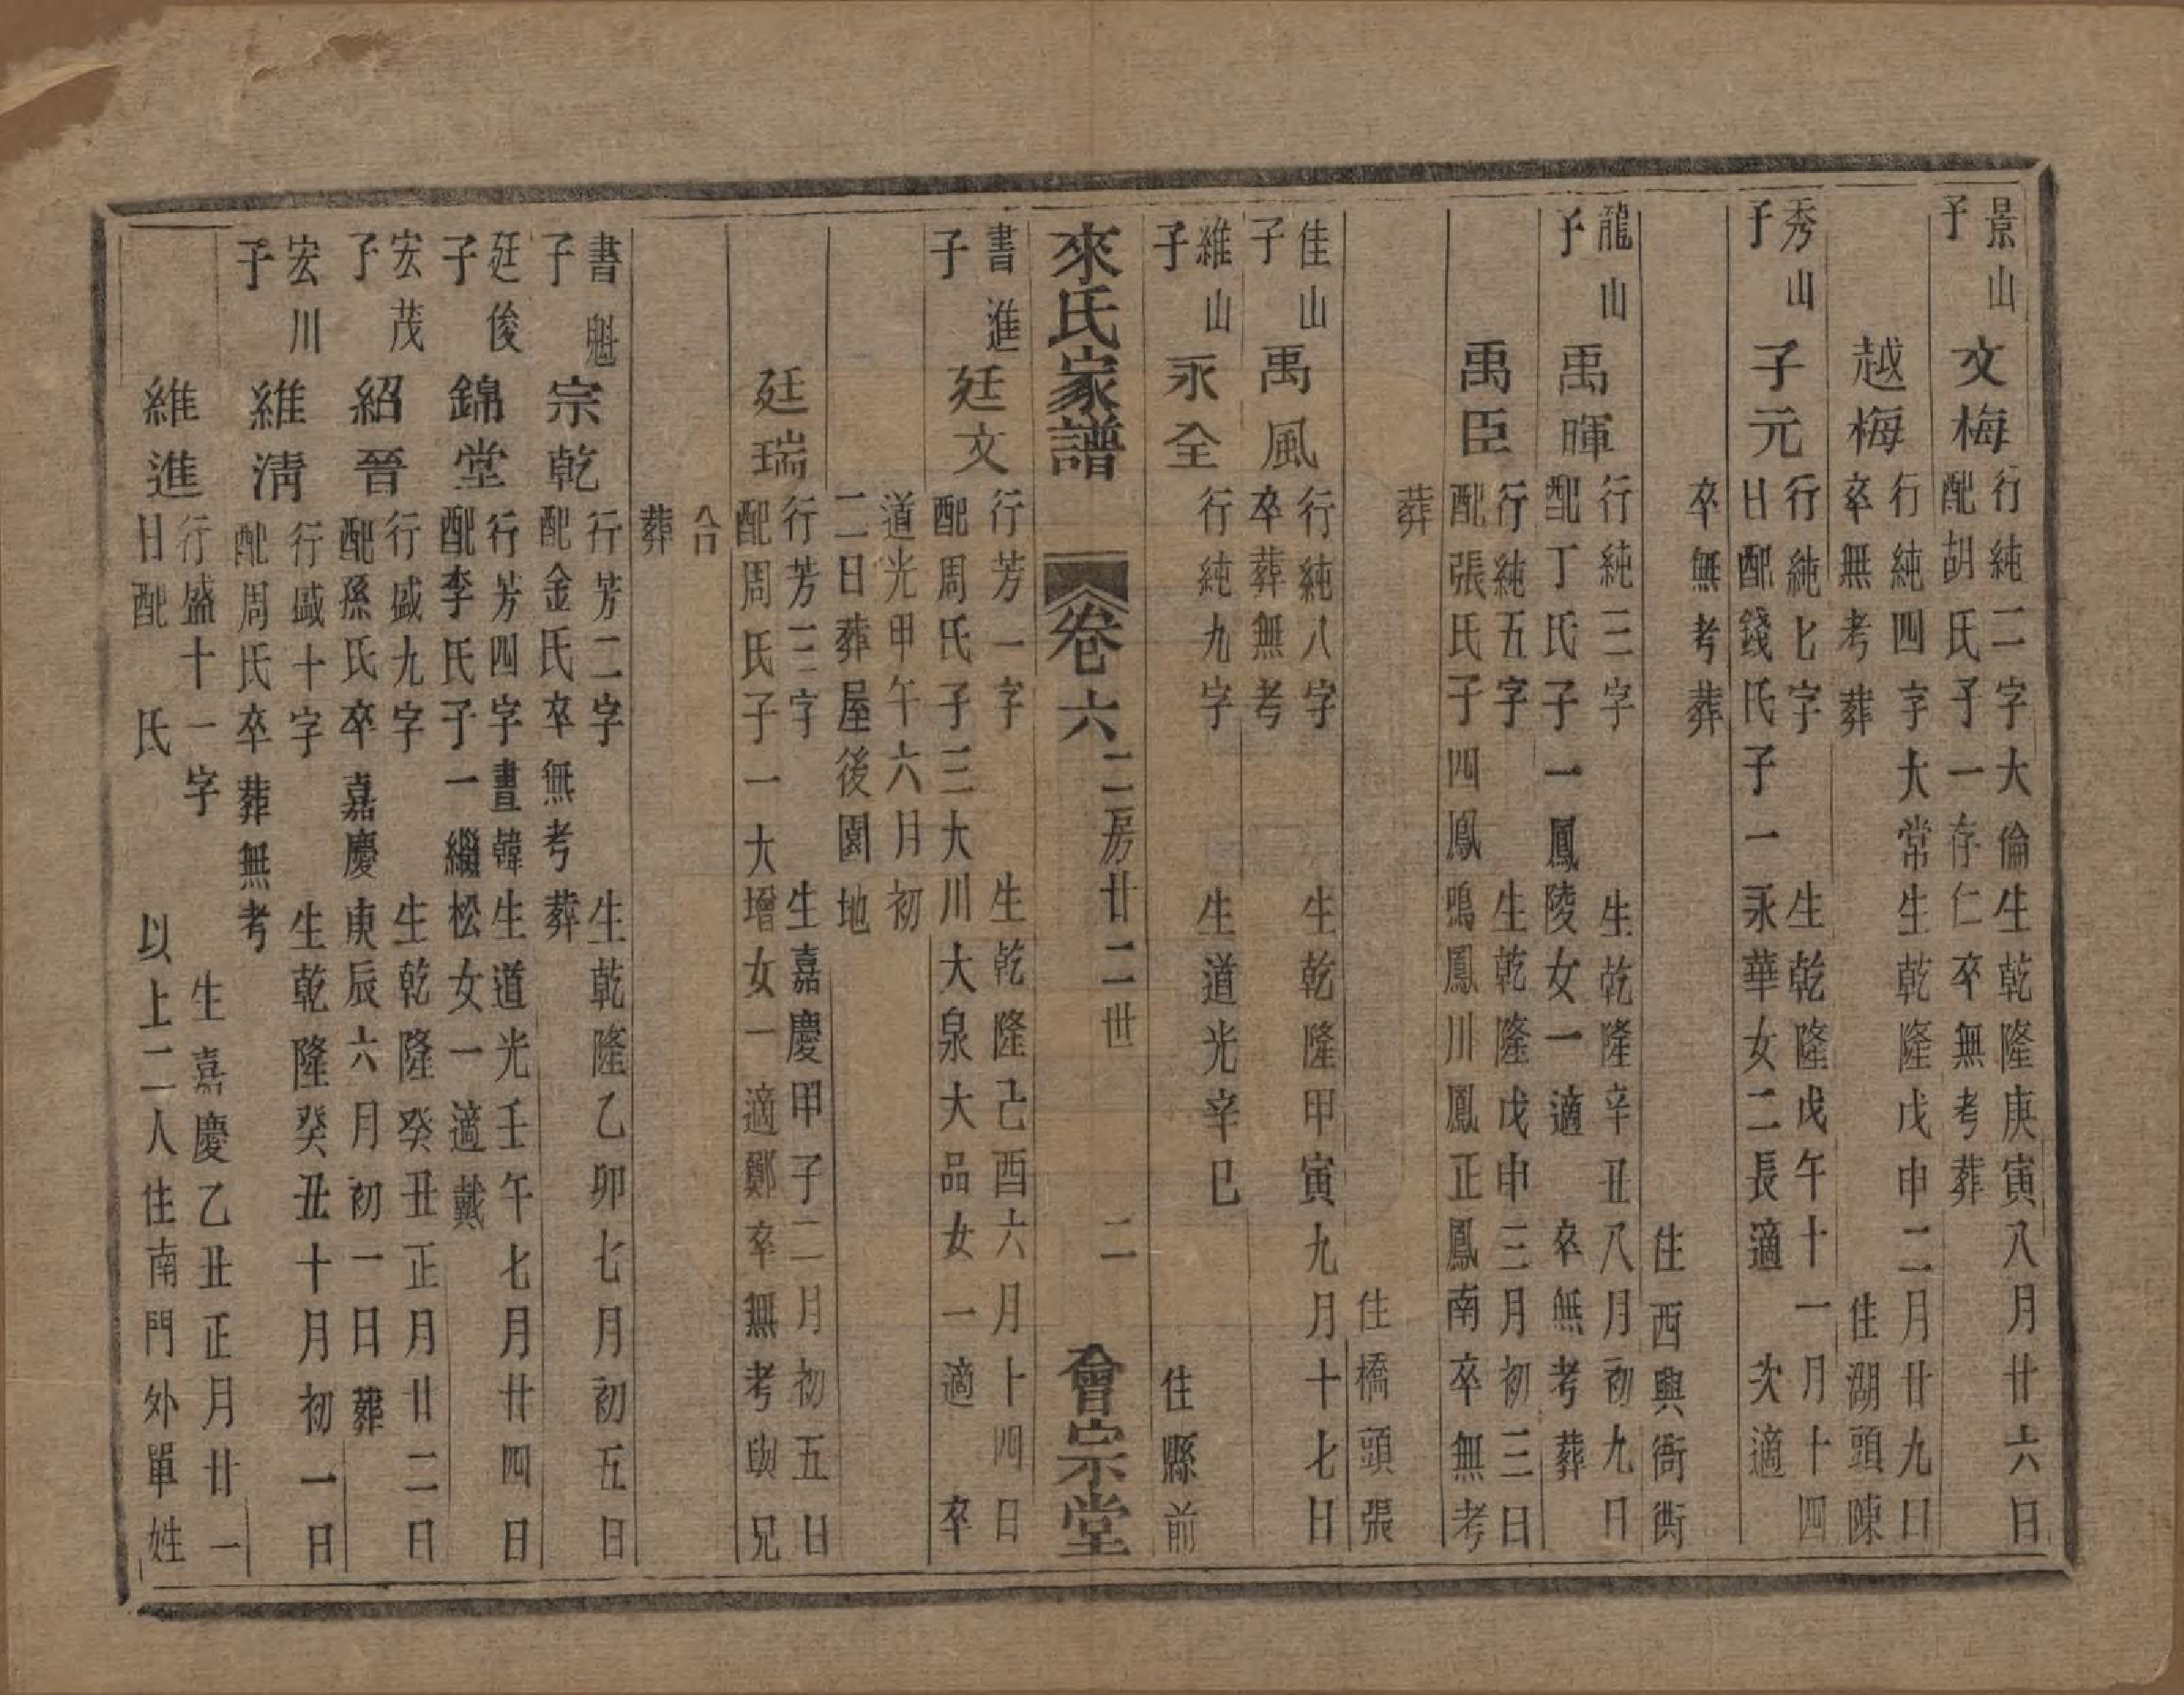 景山
子
文梅
行純二字大倫生乾隆庚寅八月廿六日
配胡氏子一存仁卒無考葬
越梅
行純四字大常生乾隆戊申二月廿九日
卒無考葬　住湖頭陳
秀山
子
子元
行純七字　生乾隆戊午十一月十四
日配錢氏子一永華女二長適　次適
住西興衙衖
卒無考葬
龍山
子
禹暉
行純三字　生乾隆辛丑八月初九日
配丁氏子一鳳陵女一適　卒無考葬
禹臣
行純五字　生乾隆戊申三月初三日
配張氏子四鳳鳴鳳川鳳正鳳南卒無考
葬　住橋頭張
佳山
子
禹風
行純八字　生乾隆甲寅九月十七日
卒葬無考
維山
子
永全
行純九字　生道光辛巳
住縣前
來氏家譜　卷六　二房廿二世　二　會宗堂
書進
子
廷文
行芳一字　生乾隆己酉六月十四日
配周氏子三大川大泉大品女一適　卒
道光甲午六月初
二日葬屋後園地
廷瑞
行芳三字　生嘉慶甲子二月初五日
配周氏子一大增女一適鄭卒無考與兄
合
葬
書魁
子
宗乾
行芳二字　生乾隆乙卯七月初五日
配金氏卒無考葬
廷俊
子
錦堂
行芳四字書韓生道光壬午七月廿四日
配李氏子一繼松女一適戴
宏茂
子
紹晉
行盛九字　生乾隆癸丑正月廿二日
配孫氏卒嘉慶庚辰六月初一日葬
宏川
子
維淸
行盛十字　生乾隆癸丑十月初一日
配周氏卒葬無考
維進
行盛十一字　生嘉慶乙丑正月廿一
日配　氏　以上二人住南門外單姓